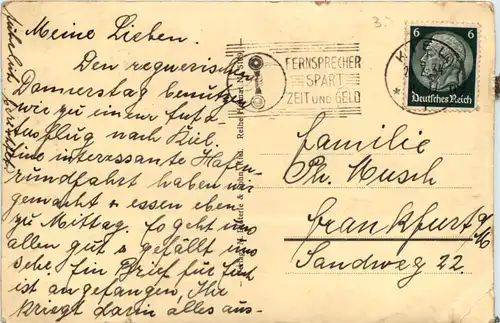 Meine Lieben.
Den regnerischen
Donnerstag benutzen
wir zu einer
Ausflug nach Kiel.
Eine interessante Hafen-
rundfahrt haben wir
gemacht & essen eben
zu Mittag. Es geht uns
allen gut & gefällt uns
sehr. Ein Brief für
ist angefangen, Ihr
kriegt darin alles aus-
FERNSPRECHER
SPART
ZEIT UND GELD
6 6
Deutsches Reich
Familie
Ph. Musch
Frankfurt a/M
Sandweg 22.